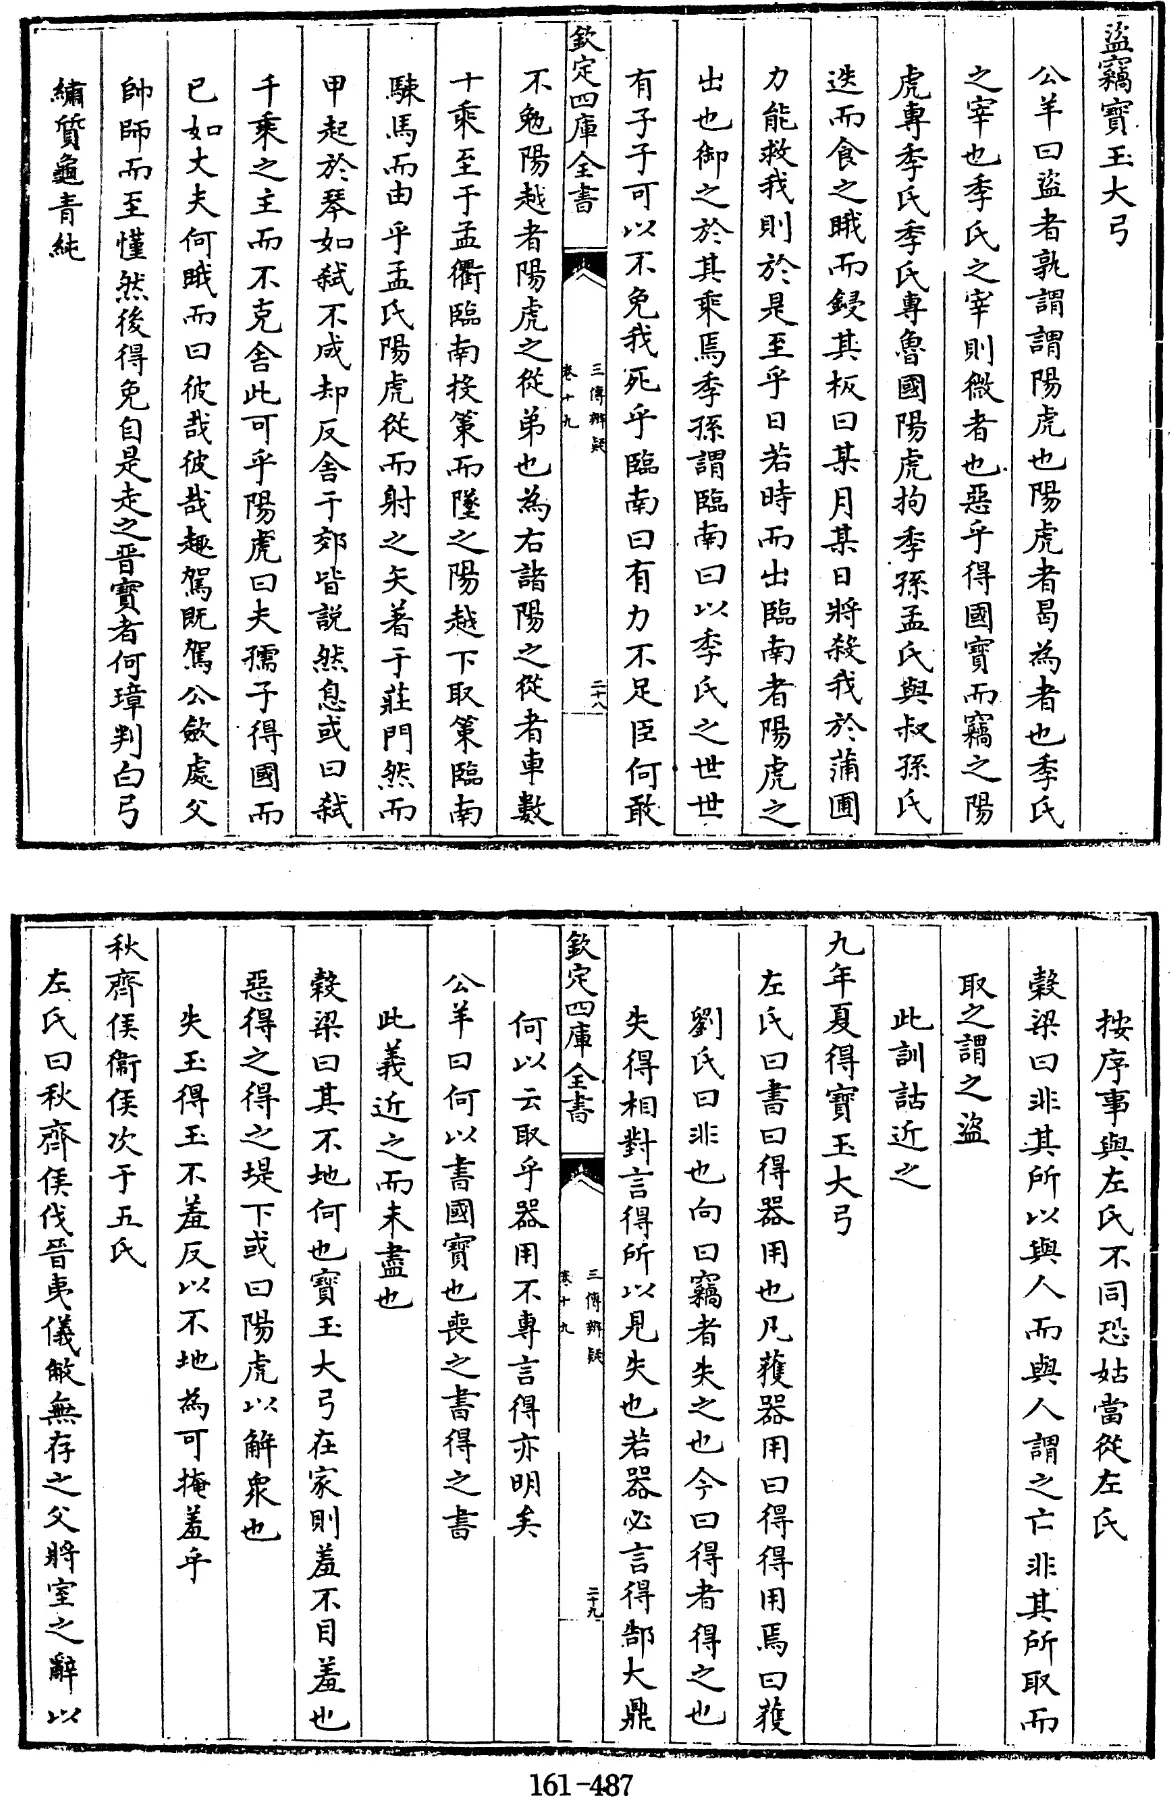 盗竊寳玉大弓
公羊曰盗者孰謂謂陽虎也陽虎者曷為者也季氏
之宰也季氏之宰則微者也惡乎得國寳而竊之陽
虎專季氏季氏專魯國陽虎拘季孫孟氏與叔孫氏
迭而食之睋而鋟其板曰某月某日將殺我於蒲圃
力能救我則於是至乎日若時而出臨南者陽虎之
出也御之於其乘焉季孫謂臨南曰以季氏之世世
有子子可以不免我死乎臨南曰有力不足臣何敢
欽定四庫全書
三傳辨疑
卷十九
二十八
不勉陽越者陽虎之從弟也為右諸陽之從者車數
十乘至于孟衢臨南投策而墜之陽越下取策臨南
駷馬而由乎孟氏陽虎從而射之矢著于莊門然而
甲起於琴如弑不成却反舍于郊皆説然息或曰弑
千乘之主而不克舍此可乎陽虎曰夫孺子得國而
已如丈夫何睋而曰彼哉彼哉趣駕既駕公斂處父
帥師而至慬然後得免自是走之晋寳者何璋判白弓
繡質龜青純
按序事與左氏不同恐姑當從左氏
榖梁曰非其所以與人而與人謂之亡非其所取而
取之謂之盗
此訓詁近之
九年夏得寳玉大弓
左氏曰書曰得器用也凡獲器用曰得得用焉曰獲
劉氏曰非也向曰竊者失之也今曰得者得之也
失得相對言得所以見失也若器必言得郜大鼎
欽定四庫全書
三傳辨疑
卷十九
二十九
何以云取乎器用不專言得亦明矣
公羊曰何以書國寳也喪之書得之書
此義近之而未盡也
榖梁曰其不地何也寳玉大弓在家則羞不目羞也
惡得之得之堤下或曰陽虎以解衆也
失玉得玉不羞反以不地為可掩羞乎
秋齊侯衞侯次于五氏
左氏曰秋齊侯伐晉夷儀敝無存之父將室之辭以
161-487